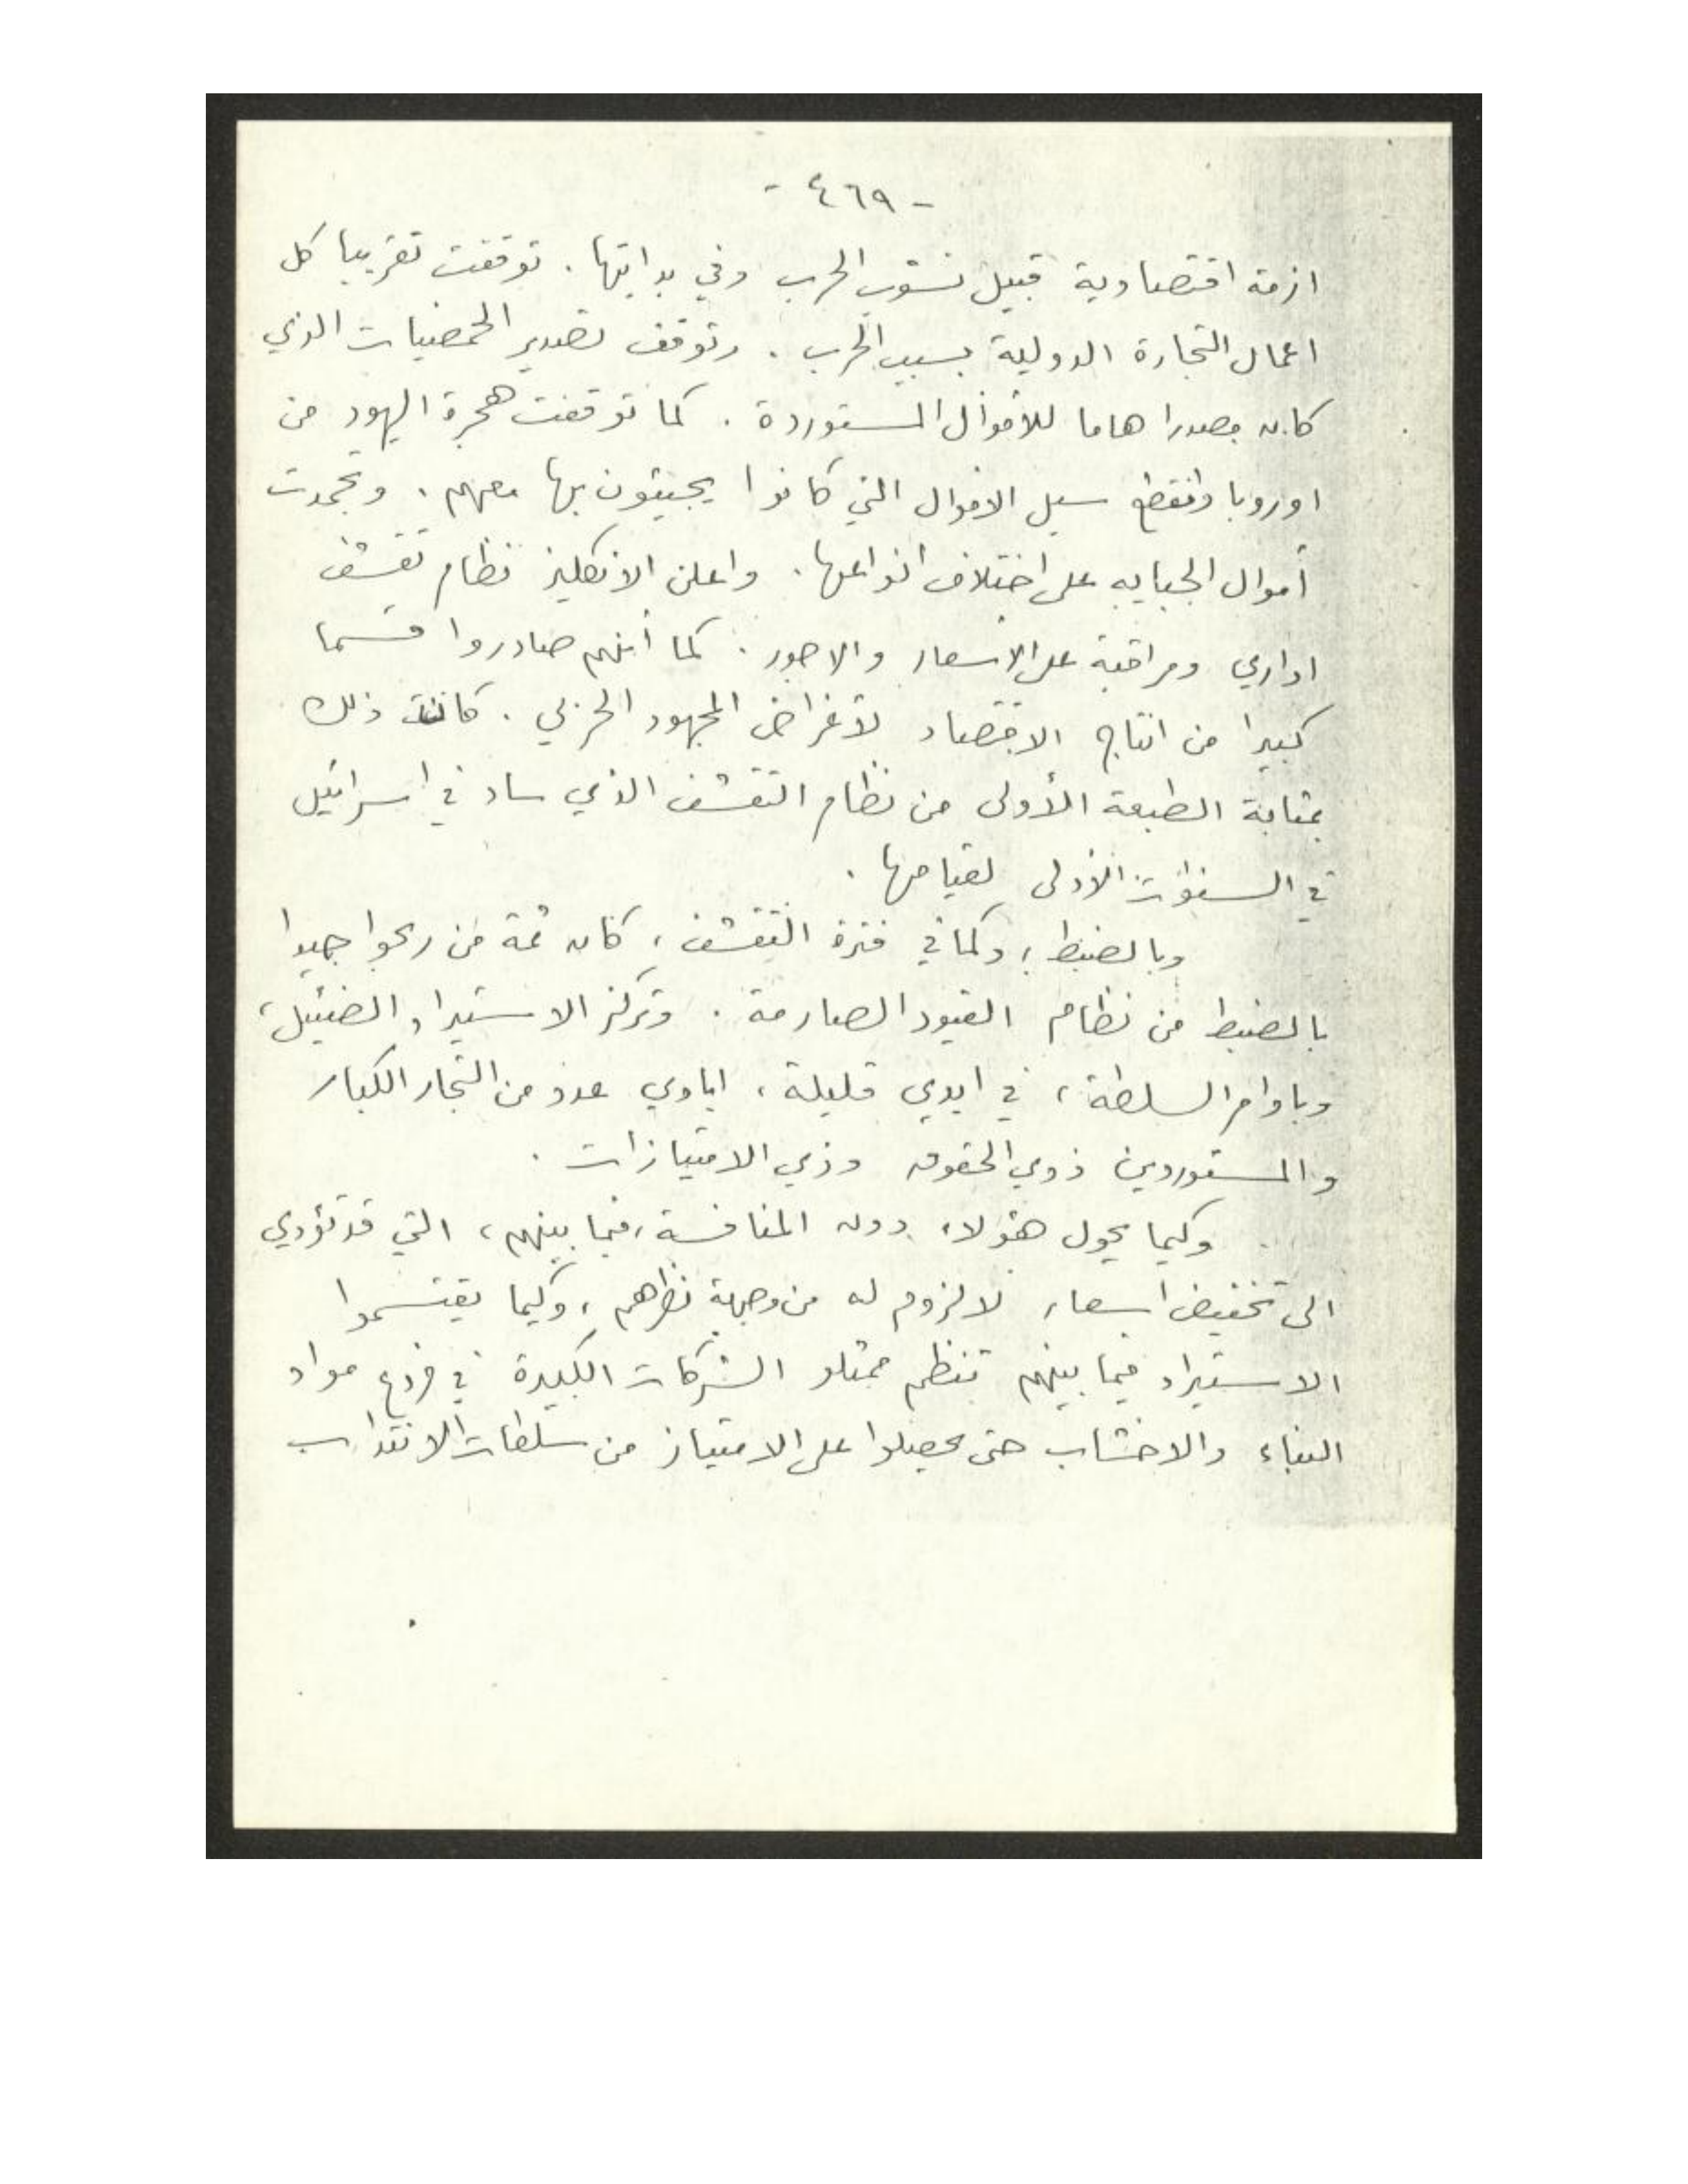 - ٤٦٩ -
ازمة اقتصادية قبيل نشوب الحرب وفي بدايتها. توقفت تقريبا كل
اعمال التجارة الدولية بسبب الحرب. وتوقف تصدير الحمضيات الذي
كان مصدرا هاما للأموال المستوردة. كما توقفت هجرة اليهود من
اوروبا وانقطع سيل الاموال التي كانوا يجيئون بها معهم. وتجمدت
أموال الجبايه على اختلاف انواعها. واعلن الانكليز نظام تقشف
اداري ومراقبة على الاسعار والاجور. كما أنهم صادروا قسما
كبيرا من انتاج الاقتصاد لأغراض المجهود الحربي. كانت ذلك
بمثابة الطبعة الأولى من نظام التقشف الذي ساد في اسرائيل
في السنوات الأولى لقيامها.
وبالضبط، وكما في فترة التقشف، كان ثمة من ربحوا جيدا
بالضبط من نظام القيود الصارمة. وتركز الاستيراد الضئيل،
وباوامر السلطة، في ايدي قليلة، ايادي عدد من التجار الكبار
والمستوردين ذوي الحقوق وذي الامتيازات.
وكيما يحول هؤلاء دون المنافسة، فيما بينهم، التي قد تؤدي
الى تخفيض اسعار لا لزوم له من وجهة نظراهم، وكيما يقتسموا
الاستيراد فيما بينهم تنظم ممثلو الشركات الكبيرة في فروع مواد
البناء والاخشاب حتى يحصلوا على الامتياز من سلطات الانتداب